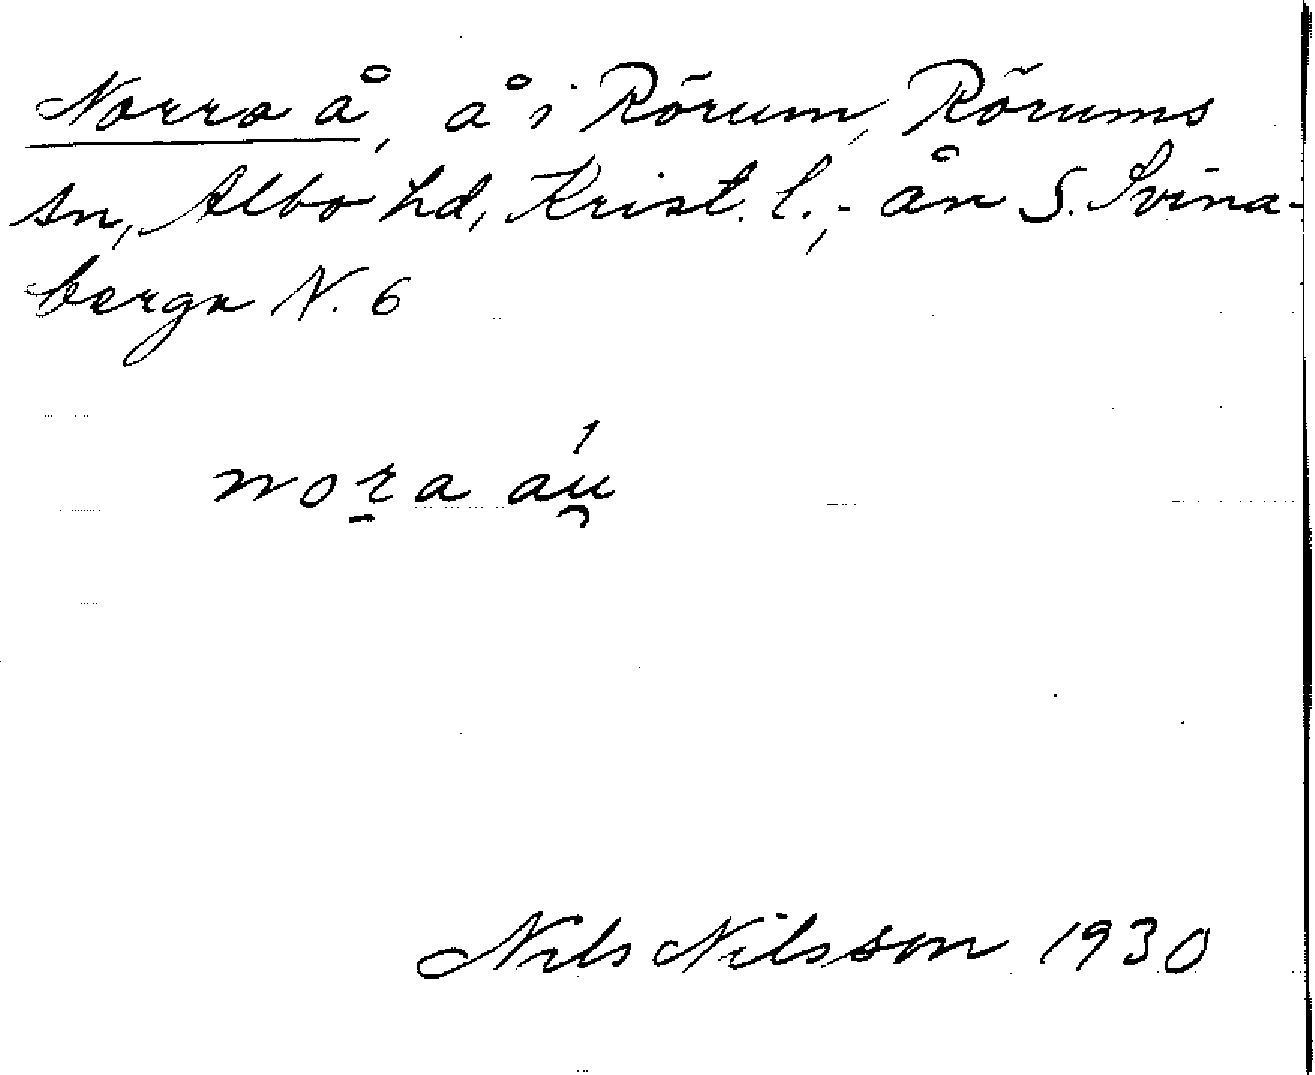 Norra å, å i Rörum, Rörums
sn, Albo hd, Krist. l., - ån S. Svina-
berga N. 6
nor̠a aú̯
Nils Nilsson 1930